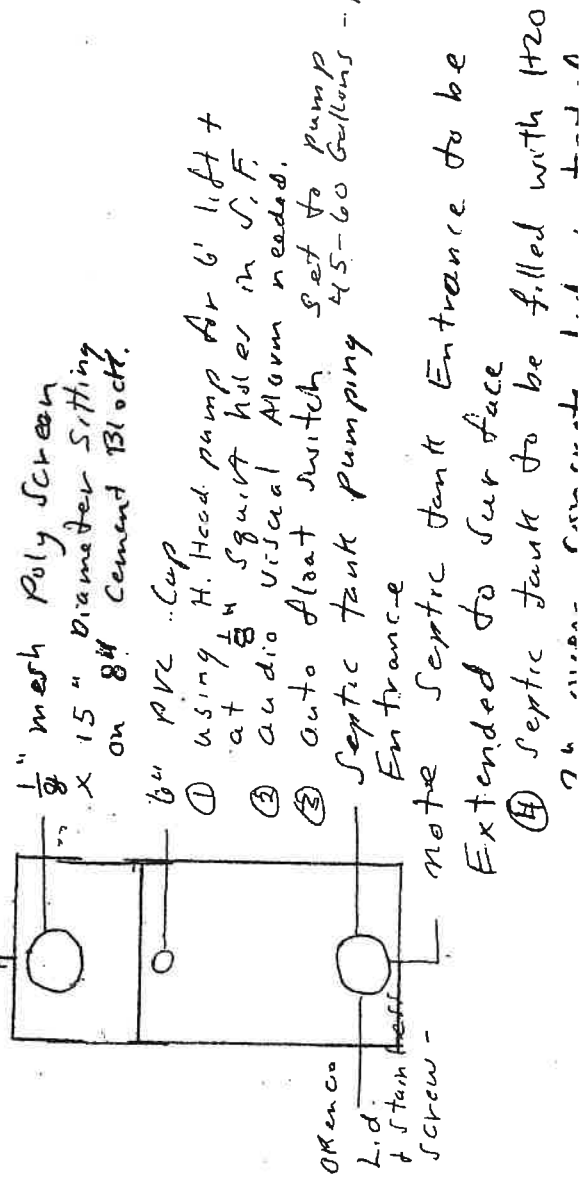 1/8" mesh Poly Screen
x 15" Diameter Sitting
on 8" Cement Block.
6" PVC Cap
① using H. Head pump for 6' lift +
at 1/8" Squirt holes in S.F.
② audio Viscal Alarm needed.
③ auto float switch Set to pump
45-60 Gallons -
Septic tank pumping
Entrance
note Septic tank Entrance to be
Extended to Surface
④ Septic tank to be filled with H20
ORenco
Lid.
& Stainless
Screw -